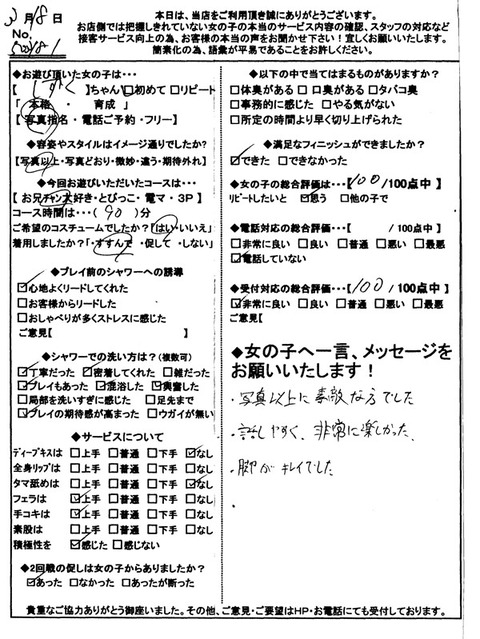 3月18日
No.
本日は、当店をご利用頂き誠にありがとうございます。
お店側では把握しきれていない女の子の本当のサービス内容の確認、スタッフの対応など
接客サービス向上の為、お客様の本当の声をお聞かせ下さい！宜しくお願いいたします。
簡素化の為、語彙が平易であることをお許しください。
◆お遊び頂いた女の子は・・・
【 】ちゃん ☑初めて □リピート
「 本格 ・ 育成 」
【 写真指名・電話ご予約・フリー】
◆容姿やスタイルはイメージ通りでしたか?
【写真以上・写真どおり・微妙・違う・期待外れ】
◆今回お遊びいただいたコースは・・・
【 お兄チャン大好き・とびっこ・電マ・3P】
コース時間は・・・( 90 )分
ご希望のコスチュームでしたか?「はい・いいえ」
着用しましたか?「・すすんで・促して・しない」
◆プレイ前のシャワーへの誘導
☑心地よくリードしてくれた
□お客様からリードした
□おしゃべりが多くストレスに感じた
ご意見【 】
◆シャワーでの洗い方は？(複数可)
☑丁寧だった □密着してくれた □雑だった
☑プレイもあった ☑混浴した ☑興奮した
□局部を洗いすぎに感じた □足先まで
☑プレイの期待感が高まった □ウガイが無い
◆サービスについて
ディープキスは □上手 □普通 □下手 ☑なし
全身リップは □上手 □普通 □下手 □なし
タマ舐めは □上手 □普通 □下手 ☑なし
フェラは ☑上手 □普通 □下手 □なし
手コキは ☑上手 □普通 □下手 □なし
素股は □上手 □普通 □下手 □なし
積極性を ☑感じた □感じない
◆2回戦の促しは女の子からありましたか？
☑あった □なかった □あったが断った
◆以下の中で当てはまるものがありますか？
□体臭がある □口臭がある □タバコ臭
□事務的に感じた □やる気がない
□所定の時間より早く切り上げられた
◆満足なフィニッシュができましたか？
☑できた □できなかった
◆女の子の総合評価は・・・【100/100点中】
リピートしたいと ☑思う □他の子で
◆電話対応の総合評価は・・・【 /100点中】
□非常に良い □良い □普通 □悪い □最悪
☑電話していない
◆受付対応の総合評価は・・・【100/100点中】
☑非常に良い □良い □普通 □悪い □最悪
ご意見【
◆女の子へ一言、メッセージを
お願いいたします！
・写真以上に素敵な方でした
・話しやすく、非常に楽しかった。
・脚がキレイでした
・
貴重なご協力ありがとう御座いました。その他、ご意見・ご要望はHP・お電話にても受付しております。